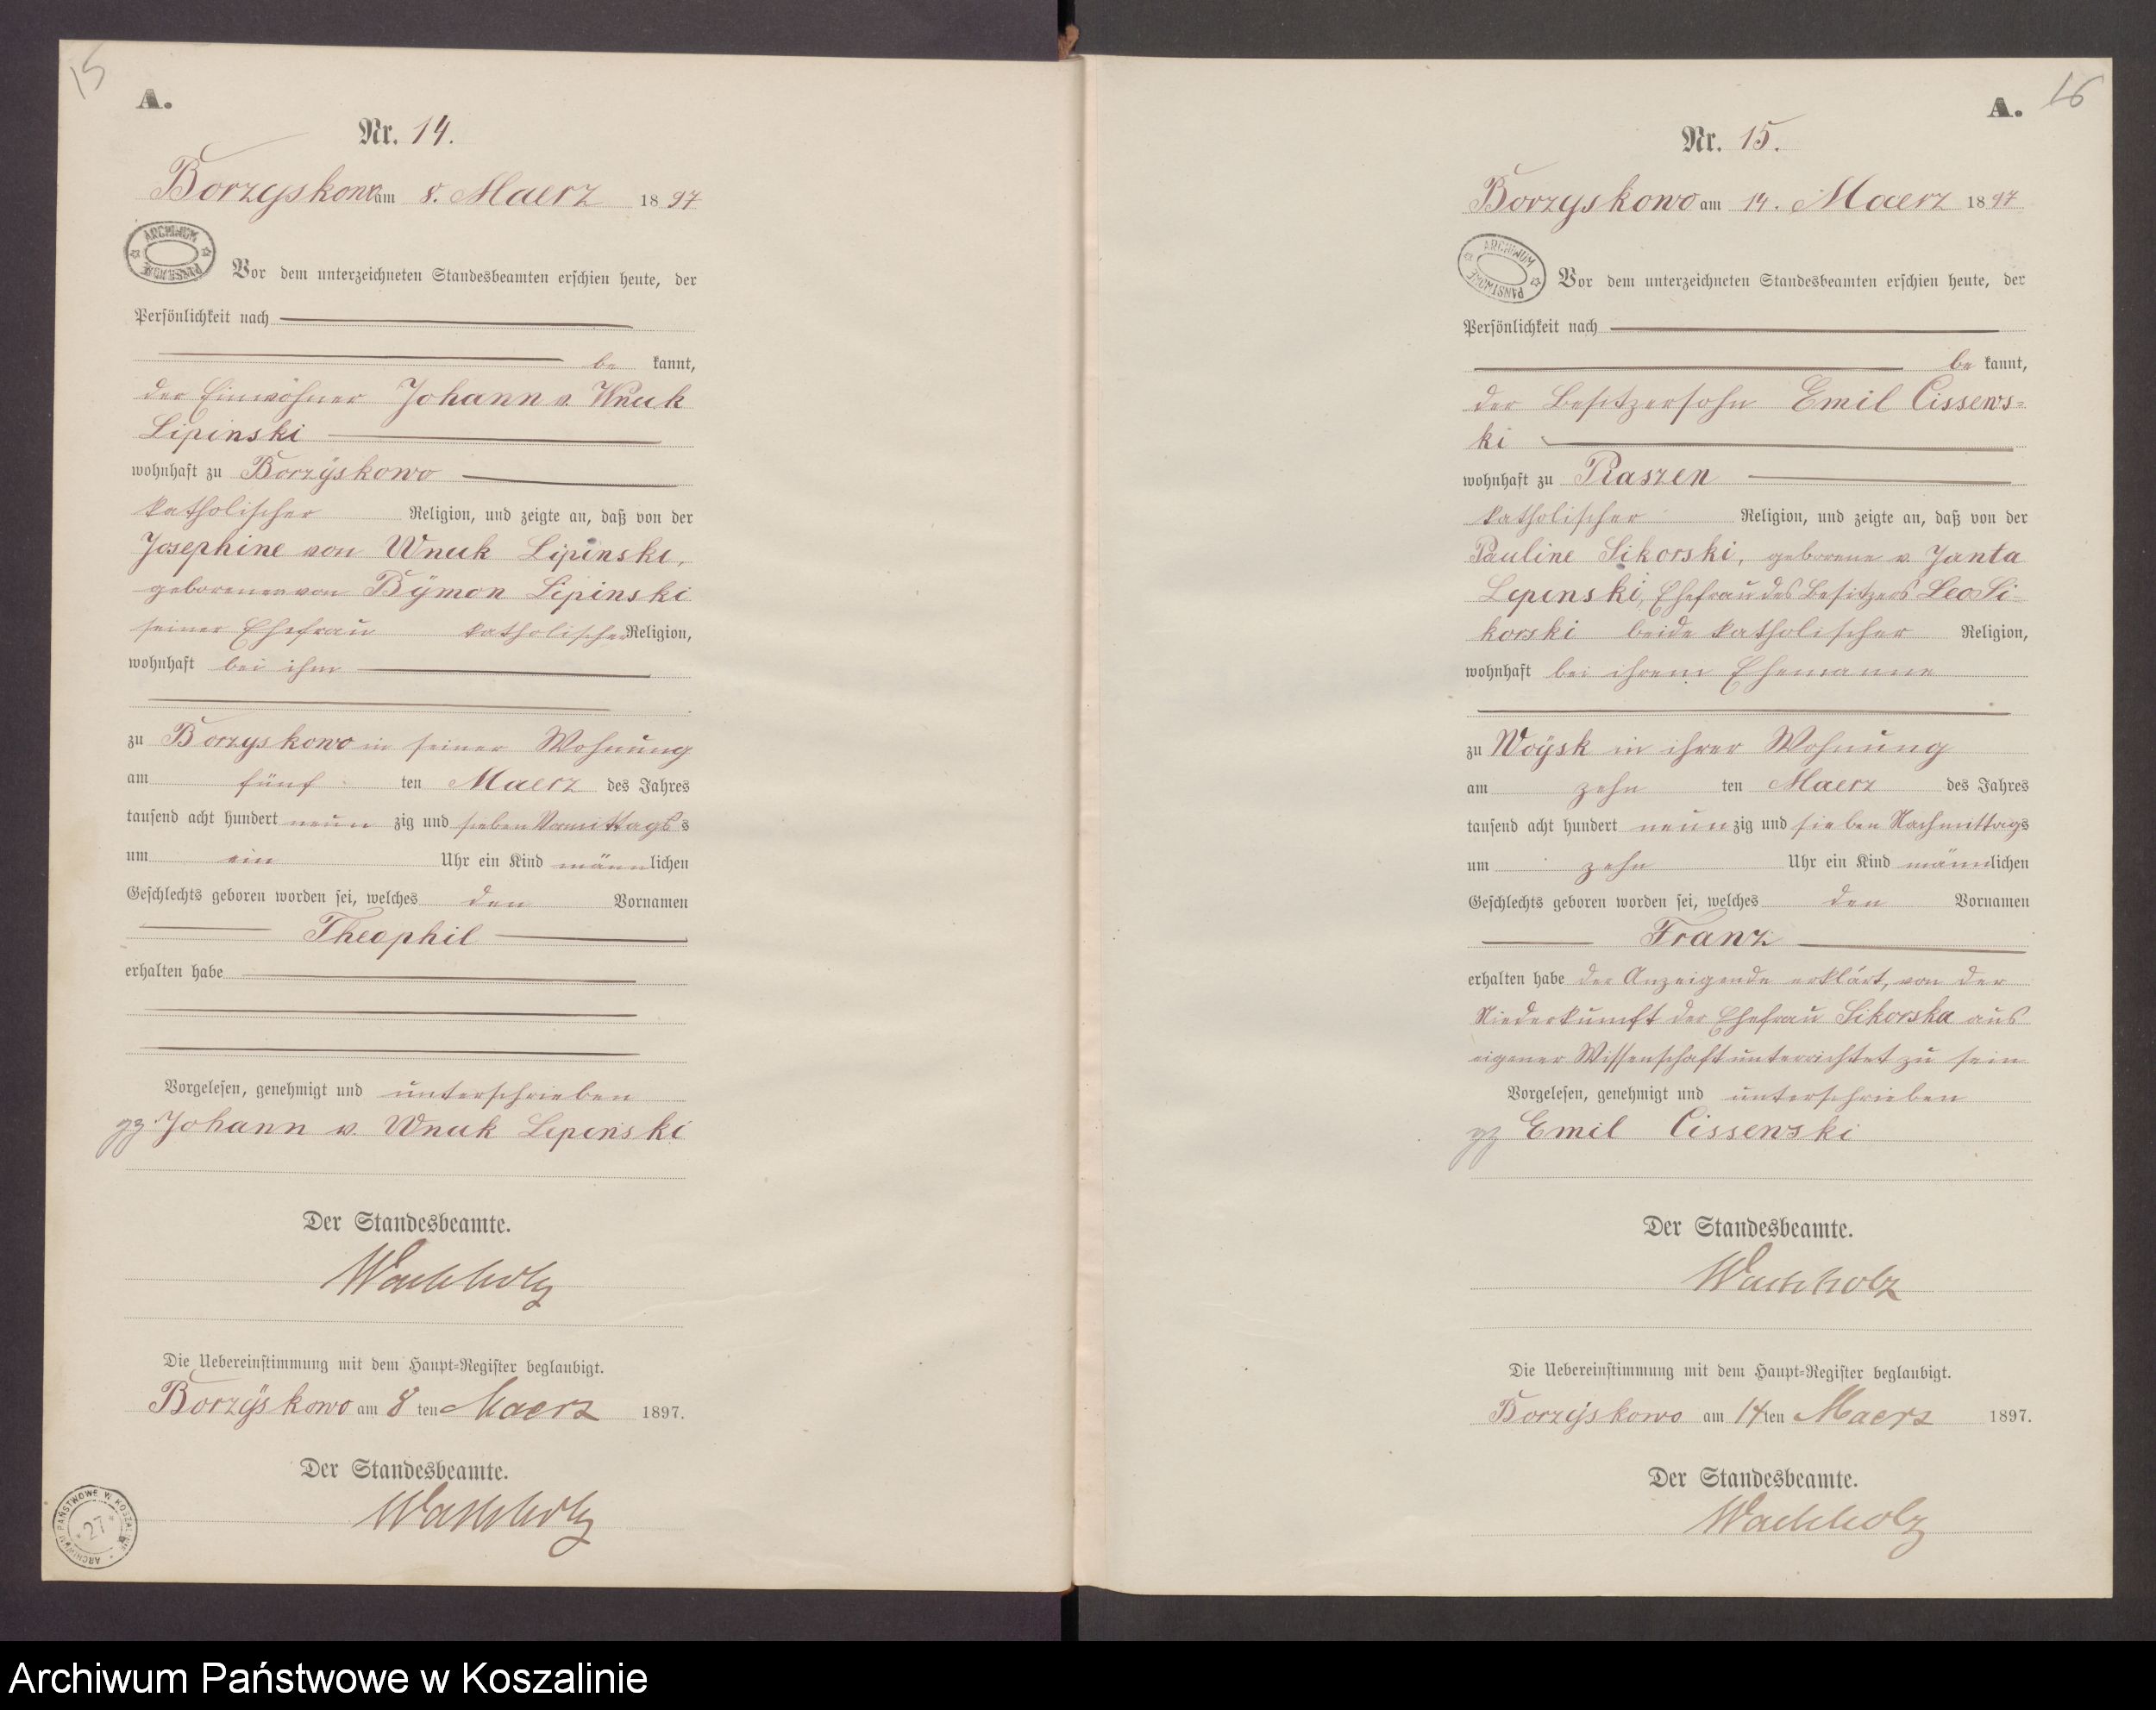 15
A.
Nr. 14.
Borzyskowo am 8. Maerz 1897
ARCHIWUM PAŃSTWOWE
Vor dem unterzeichneten Standesbeamten erschien heute, der
Persönlichkeit nach
be kannt,
der Einwohner Johann v. Wnuk
Lipinski
wohnhaft zu Borzÿskowo
katholischer Religion, und zeigte an, daß von der
Josephine von Wnuk Lipinski,
geborenen von Bÿmon Lipinski
seiner Ehefrau katholischer Religion,
wohnhaft bei ihm
zu Borzyskowo in seiner Wohnung
am fünf ten Maerz des Jahres
tausend acht hundert neun zig und sieben Vormittags
um ein Uhr ein Kind männlichen
Geschlechts geboren worden sei, welches den Vornamen
Theophil
erhalten habe
Vorgelesen, genehmigt und unterschrieben
gz Johann v. Wnuk Lipinski
Der Standesbeamte.
Wachholz
Die Uebereinstimmung mit dem Haupt=Register beglaubigt.
Borzÿskowo am 8 ten Maerz 1897.
Der Standesbeamte.
Wachholz
ARCHIWUM PAŃSTWOWE W KOSZALINIE
27
16
A.
Nr. 15.
Borzyskowo am 14. Maerz 1897
ARCHIWUM PAŃSTWOWE
Vor dem unterzeichneten Standesbeamten erschien heute, der
Persönlichkeit nach
be kannt,
der Besitzersohn Emil Cissews=
ki
wohnhaft zu Praszen
katholischer Religion, und zeigte an, daß von der
Pauline Sikorski, geborene v. Janta
Lipinski, Ehefrau des Besitzers Leo Si-
korski beide katholischer Religion,
wohnhaft bei ihrem Ehemanne
zu Woÿsk in ihrer Wohnung
am zehn ten Maerz des Jahres
tausend acht hundert neun zig und sieben Nachmittags
um zehn Uhr ein Kind männlichen
Geschlechts geboren worden sei, welches den Vornamen
Franz
erhalten habe der Anzeigende erklärt, von der
Niederkunft der Ehefrau Sikorska aus
eigener Wissenschaft unterrichtet zu sein
Vorgelesen, genehmigt und unterschrieben
gz Emil Cissewski
Der Standesbeamte.
Wachholz
Die Uebereinstimmung mit dem Haupt=Register beglaubigt.
Borzÿskowo am 14ten Maerz 1897.
Der Standesbeamte.
Wachholz
Archiwum Państwowe w Koszalinie